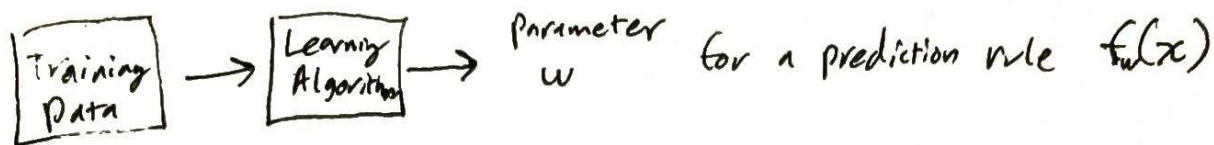 Training
Data
Learning
Algorithm
parameter
w
for a prediction rule f_w(x)